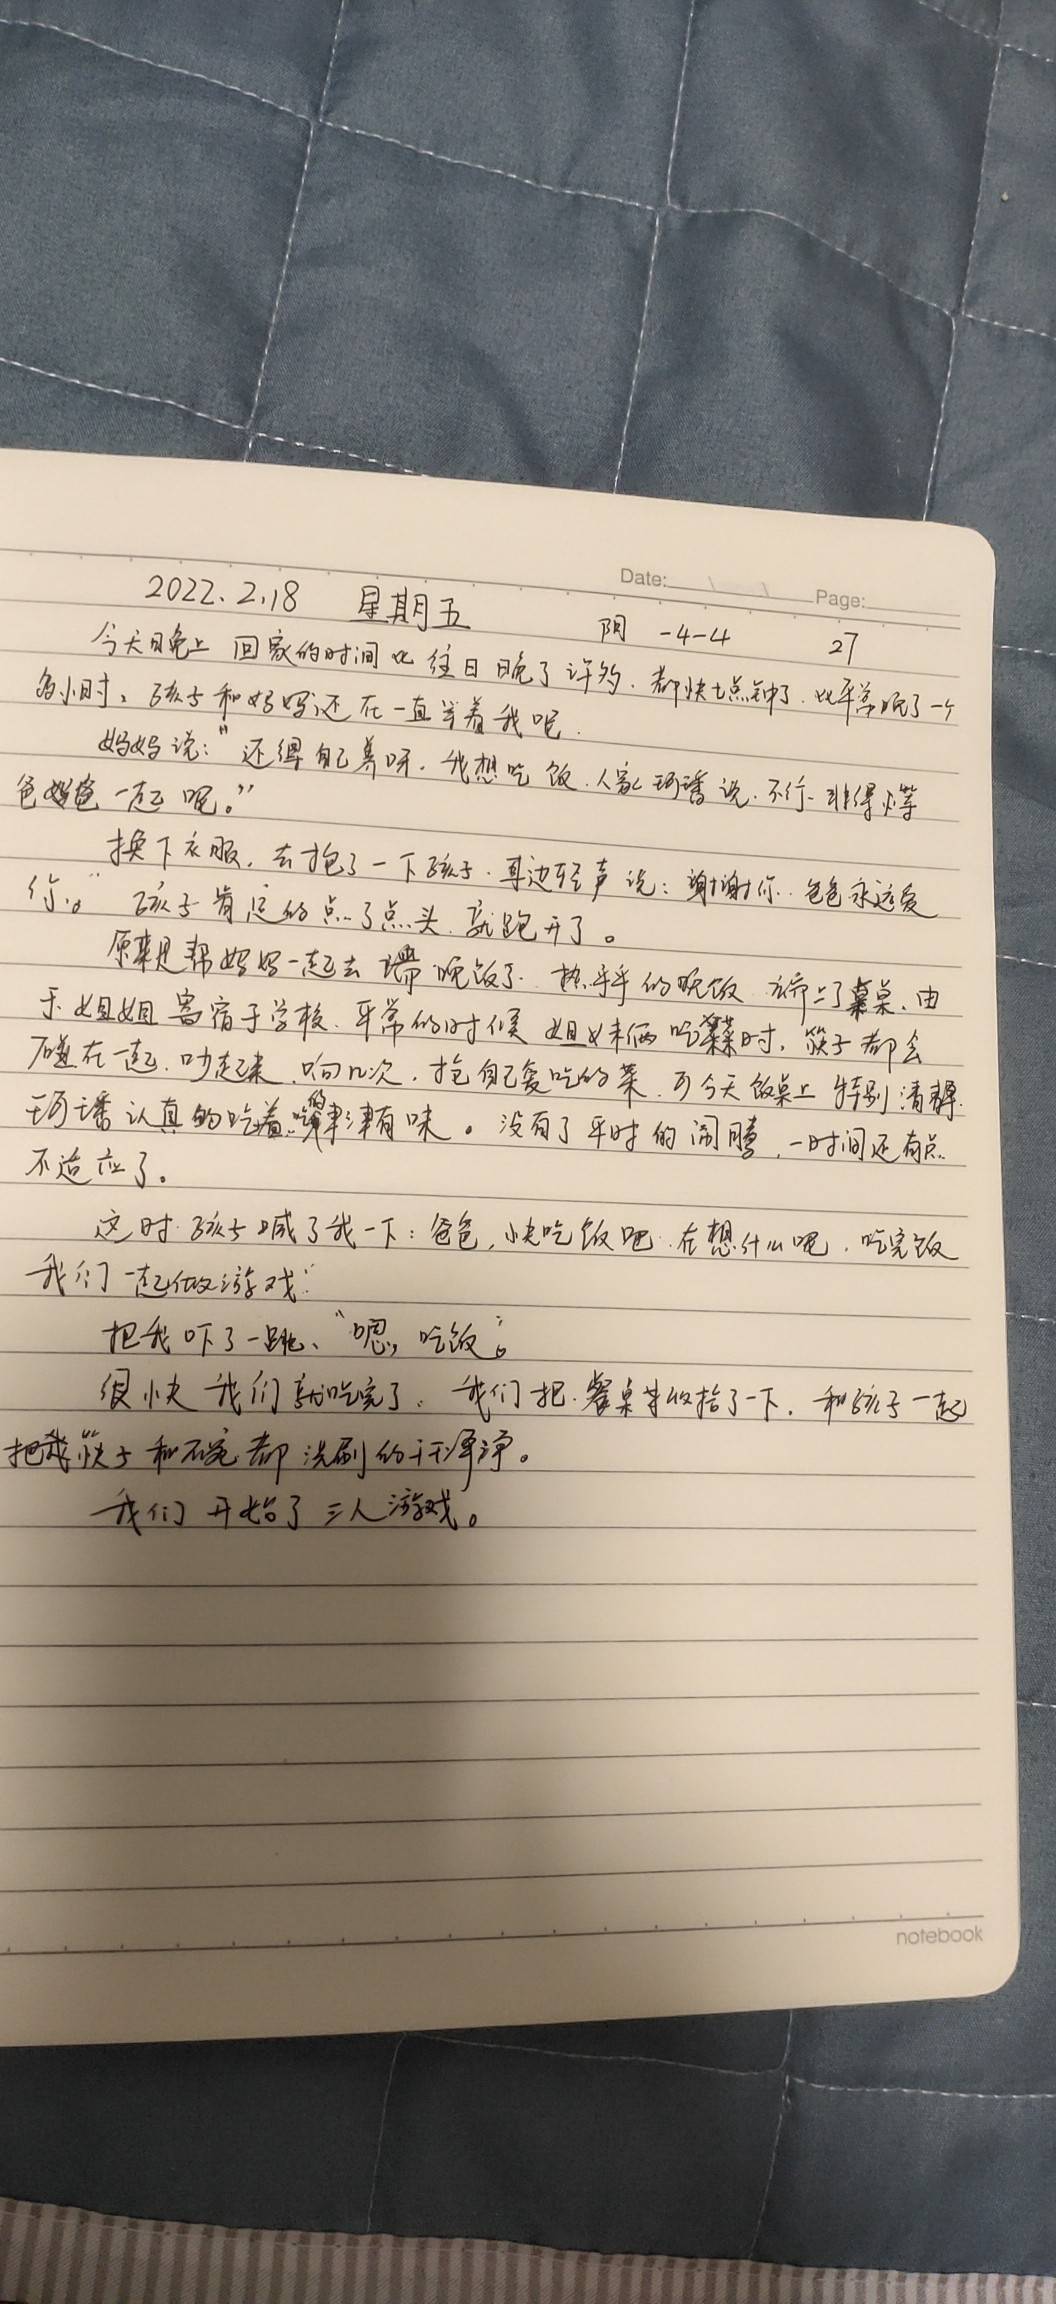 Date: Page:
2022.2.18 星期五 阴 -4-4 27
今天晚上回家的时间比往日晚了许多.都快七点钟了.比平常晚了一个
多小时。孩子和妈妈还在一直等着我呢.
妈妈说:"还得自己养呀.我想吃饭.人家珂璠说.不行.非得等
爸爸一起呢。"
换下衣服.去抱了一下孩子.耳边轻声说:谢谢你.爸爸永远爱
你。"孩子肯定的点了点头.就跑开了。
原来是帮妈妈一起去端晚饭了.热乎乎的晚饭 上了桌.由
于姐姐寄宿于学校.平常的时候姐妹俩吃菜时,筷子都会
碰在一起.吵起来.响几次.抢自己爱吃的菜.可今天饭桌上特别清静.
珂璠认真的吃着.吃的津津有味。没有了平时的闹腾,一时间还有点
不适应了。
这时.孩子喊了我一下:爸爸,快吃饭吧.在想什么呢,吃完饭
我们一起做游戏."
把我吓了一跳、"嗯,吃饭。"
很快我们就吃完了.我们把餐桌 收拾了一下.和孩子一起
把筷子和碗都洗刷的干干净净。
我们开始了三人游戏。
notebook